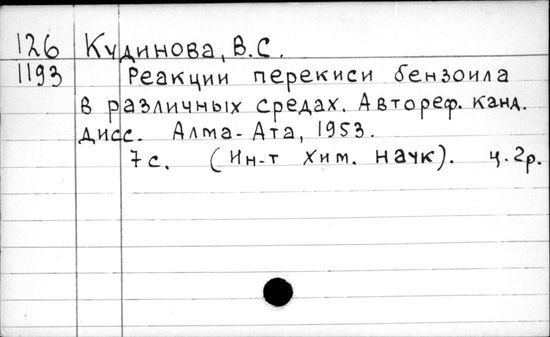 126 Кудинова, В.С.
1193 Реакции перекиси бензоила
в различных средах. Автореф. канд.
дисс. Алма-Ата, 1953.
7 с. (Ин-т хим. наук). ц. 2р.